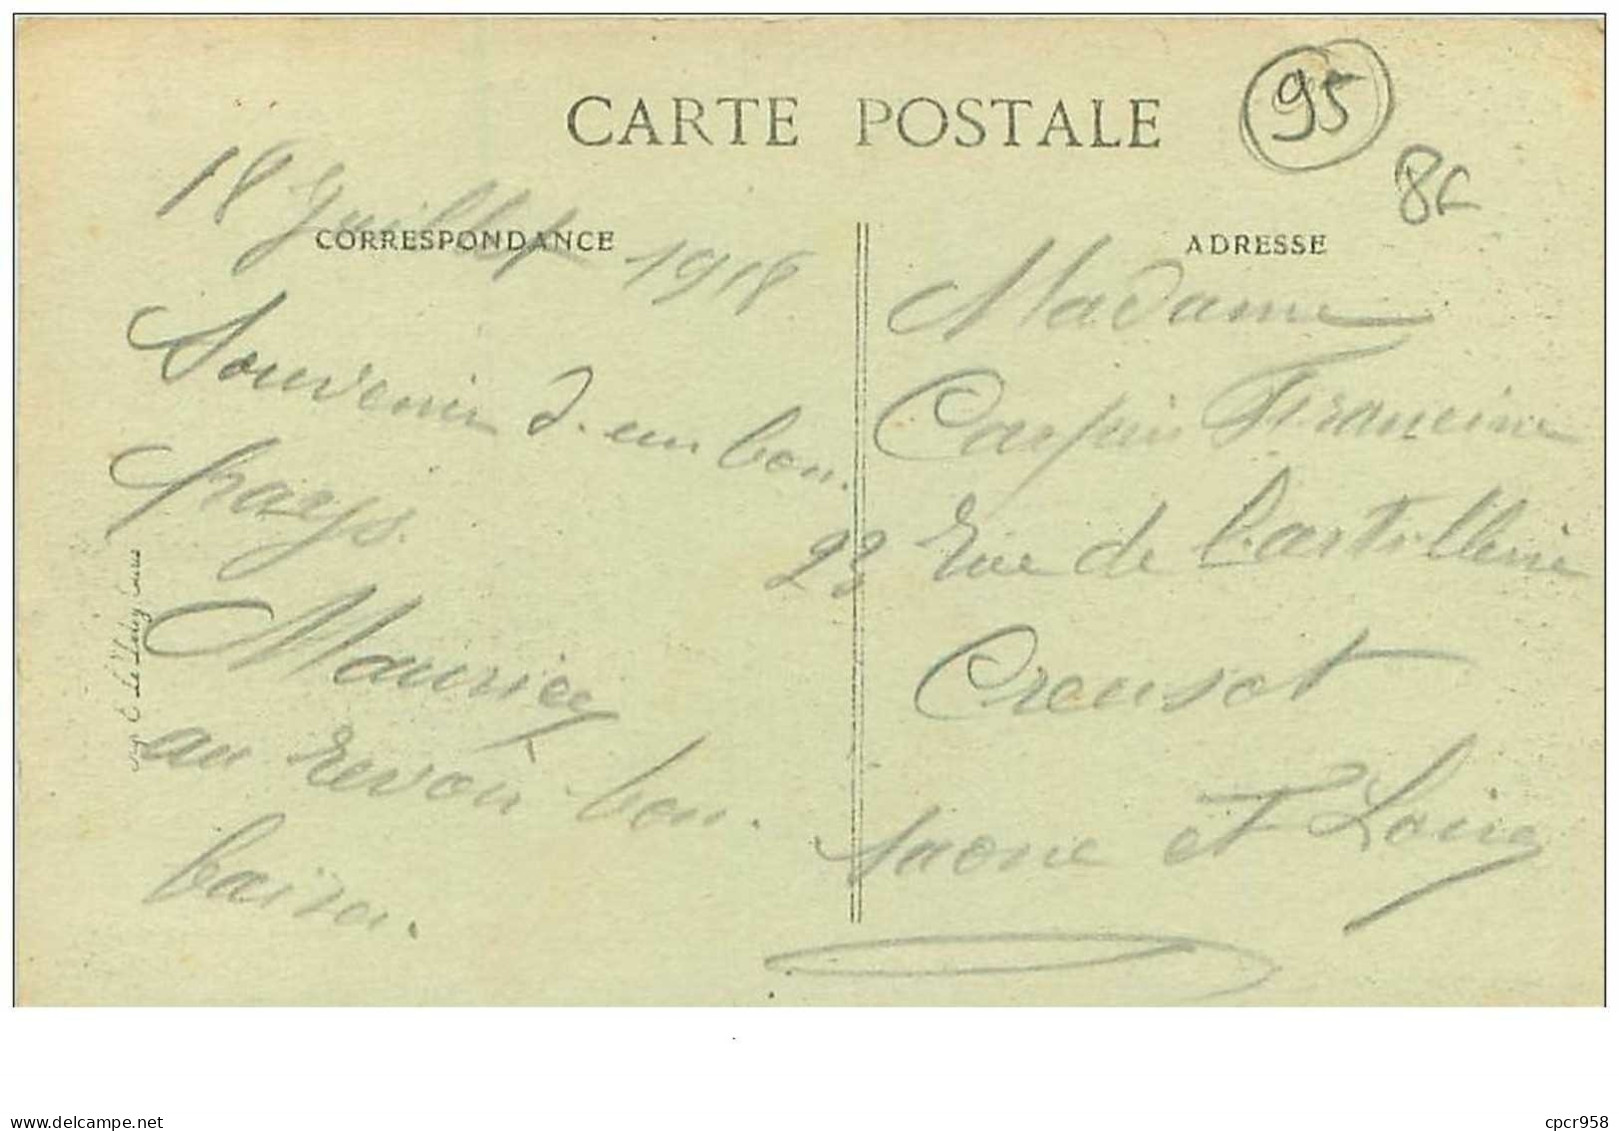 CARTE POSTALE
95
8€
CORRESPONDANCE
18 Juillet 1918
Souvenir d.un bon.
pays.
Maurice
au revoir bon.
baiser.
ADRESSE
Madame
Carpin Francine
23 Rue de Lartillerie
Creusot
Saone et Loire
delcampe.net
cpcr958